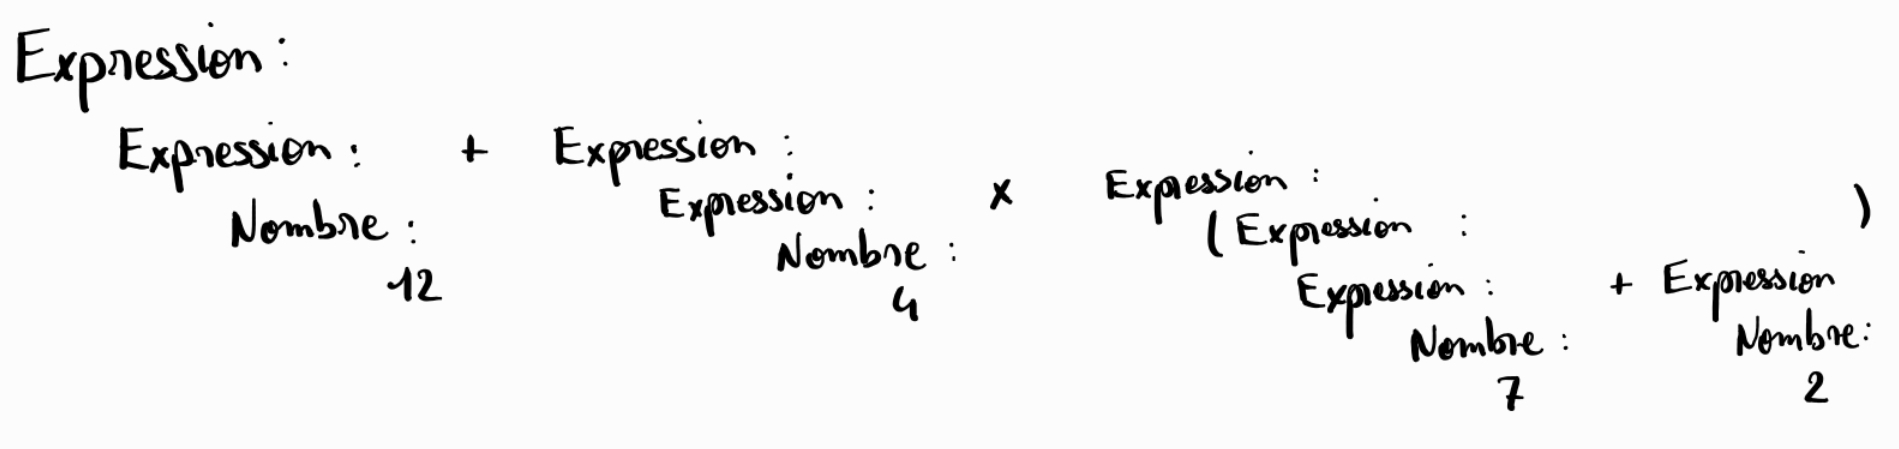 Expression :
Expression : + Expression :
Expression : x Expression :
Nombre : ( Expression : )
Nombre :
12 4 Expression : + Expression
Nombre : Nombre :
7 2